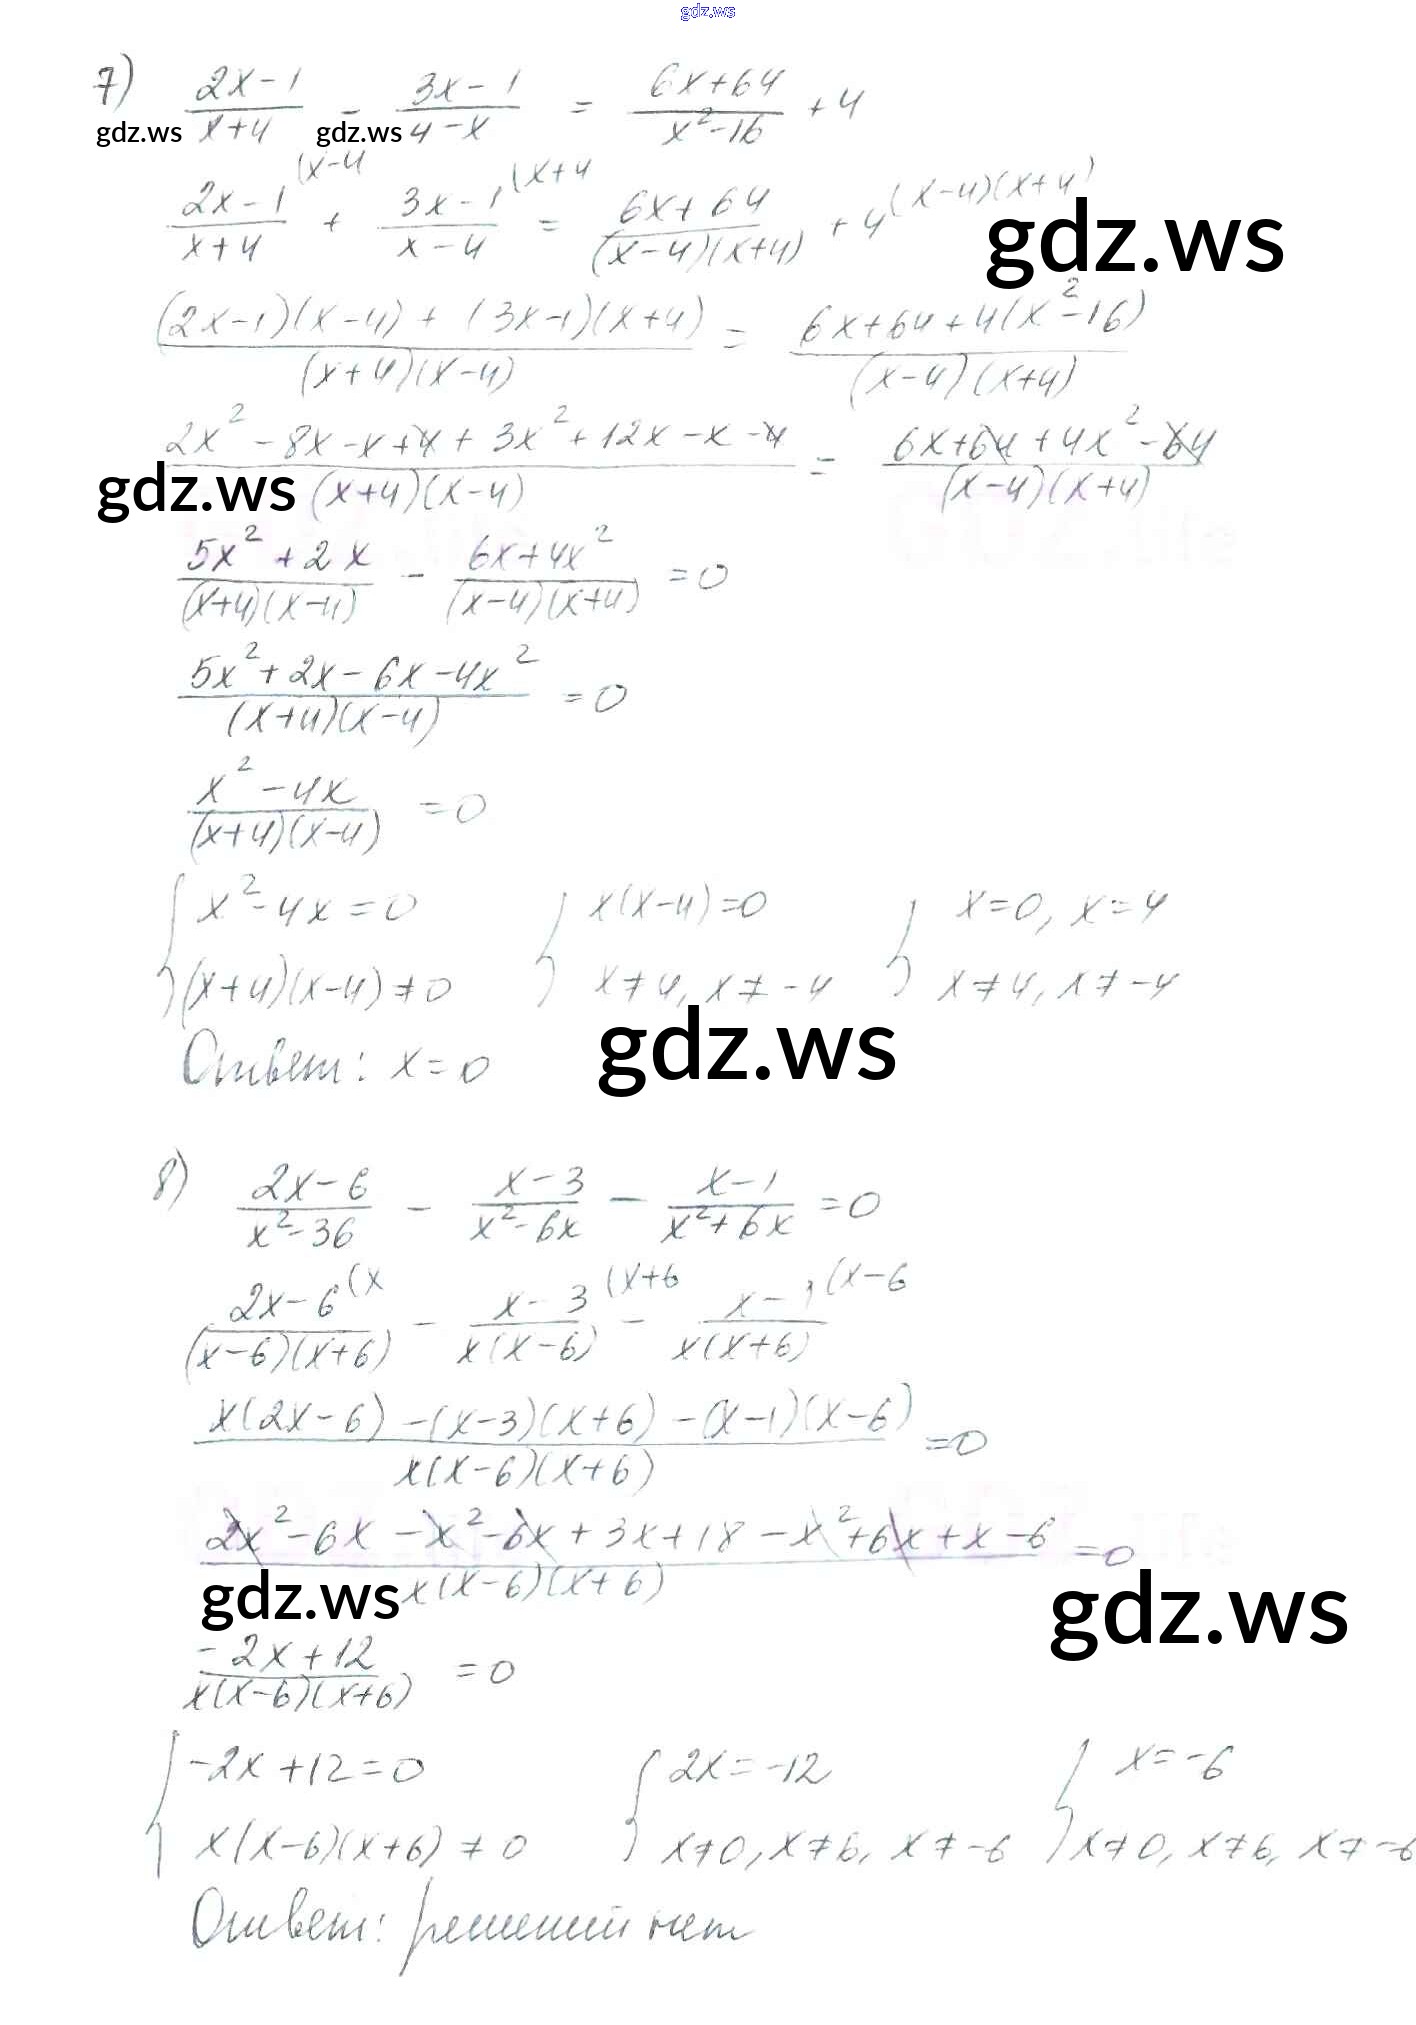 gdz.ws
7) (2x-1)/(x+4) - (3x-1)/(4-x) = (6x+64)/(x²-16) + 4
gdz.ws gdz.ws
(2x-1)/(x+4) (x-4 + (3x-1)/(x-4) (x+4 = (6x+64)/((x-4)(x+4)) + 4 (x-4)(x+4)
gdz.ws
((2x-1)(x-4) + (3x-1)(x+4))/((x+4)(x-4)) = (6x+64+4(x²-16))/((x-4)(x+4))
(2x²-8x-x+4+3x²+12x-x-4)/((x+4)(x-4)) = (6x+64+4x²-64)/((x-4)(x+4))
gdz.ws
(5x²+2x)/((x+4)(x-4)) - (6x+4x²)/((x-4)(x+4)) = 0
(5x²+2x-6x-4x²)/((x+4)(x-4)) = 0
(x²-4x)/((x+4)(x-4)) = 0
{ x²-4x=0 { x(x-4)=0 { x=0, x=4
(x+4)(x-4)≠0 x≠4, x≠-4 x≠4, x≠-4
gdz.ws
Ответ: x=0
8) (2x-6)/(x²-36) - (x-3)/(x²-6x) - (x-1)/(x²+6x) = 0
(2x-6)/((x-6)(x+6)) (x - (x-3)/(x(x-6)) (x+6 - (x-1)/(x(x+6)) (x-6
(x(2x-6)-(x-3)(x+6)-(x-1)(x-6))/(x(x-6)(x+6)) = 0
(2x²-6x-x²-6x+3x+18-x²+6x+x-6)/(x(x-6)(x+6)) = 0
gdz.ws gdz.ws
(-2x+12)/(x(x-6)(x+6)) = 0
{ -2x+12=0 { 2x=-12 { x=-6
x(x-6)(x+6)≠0 x≠0, x≠6, x≠-6 x≠0, x≠6, x≠-6
Ответ: решений нет